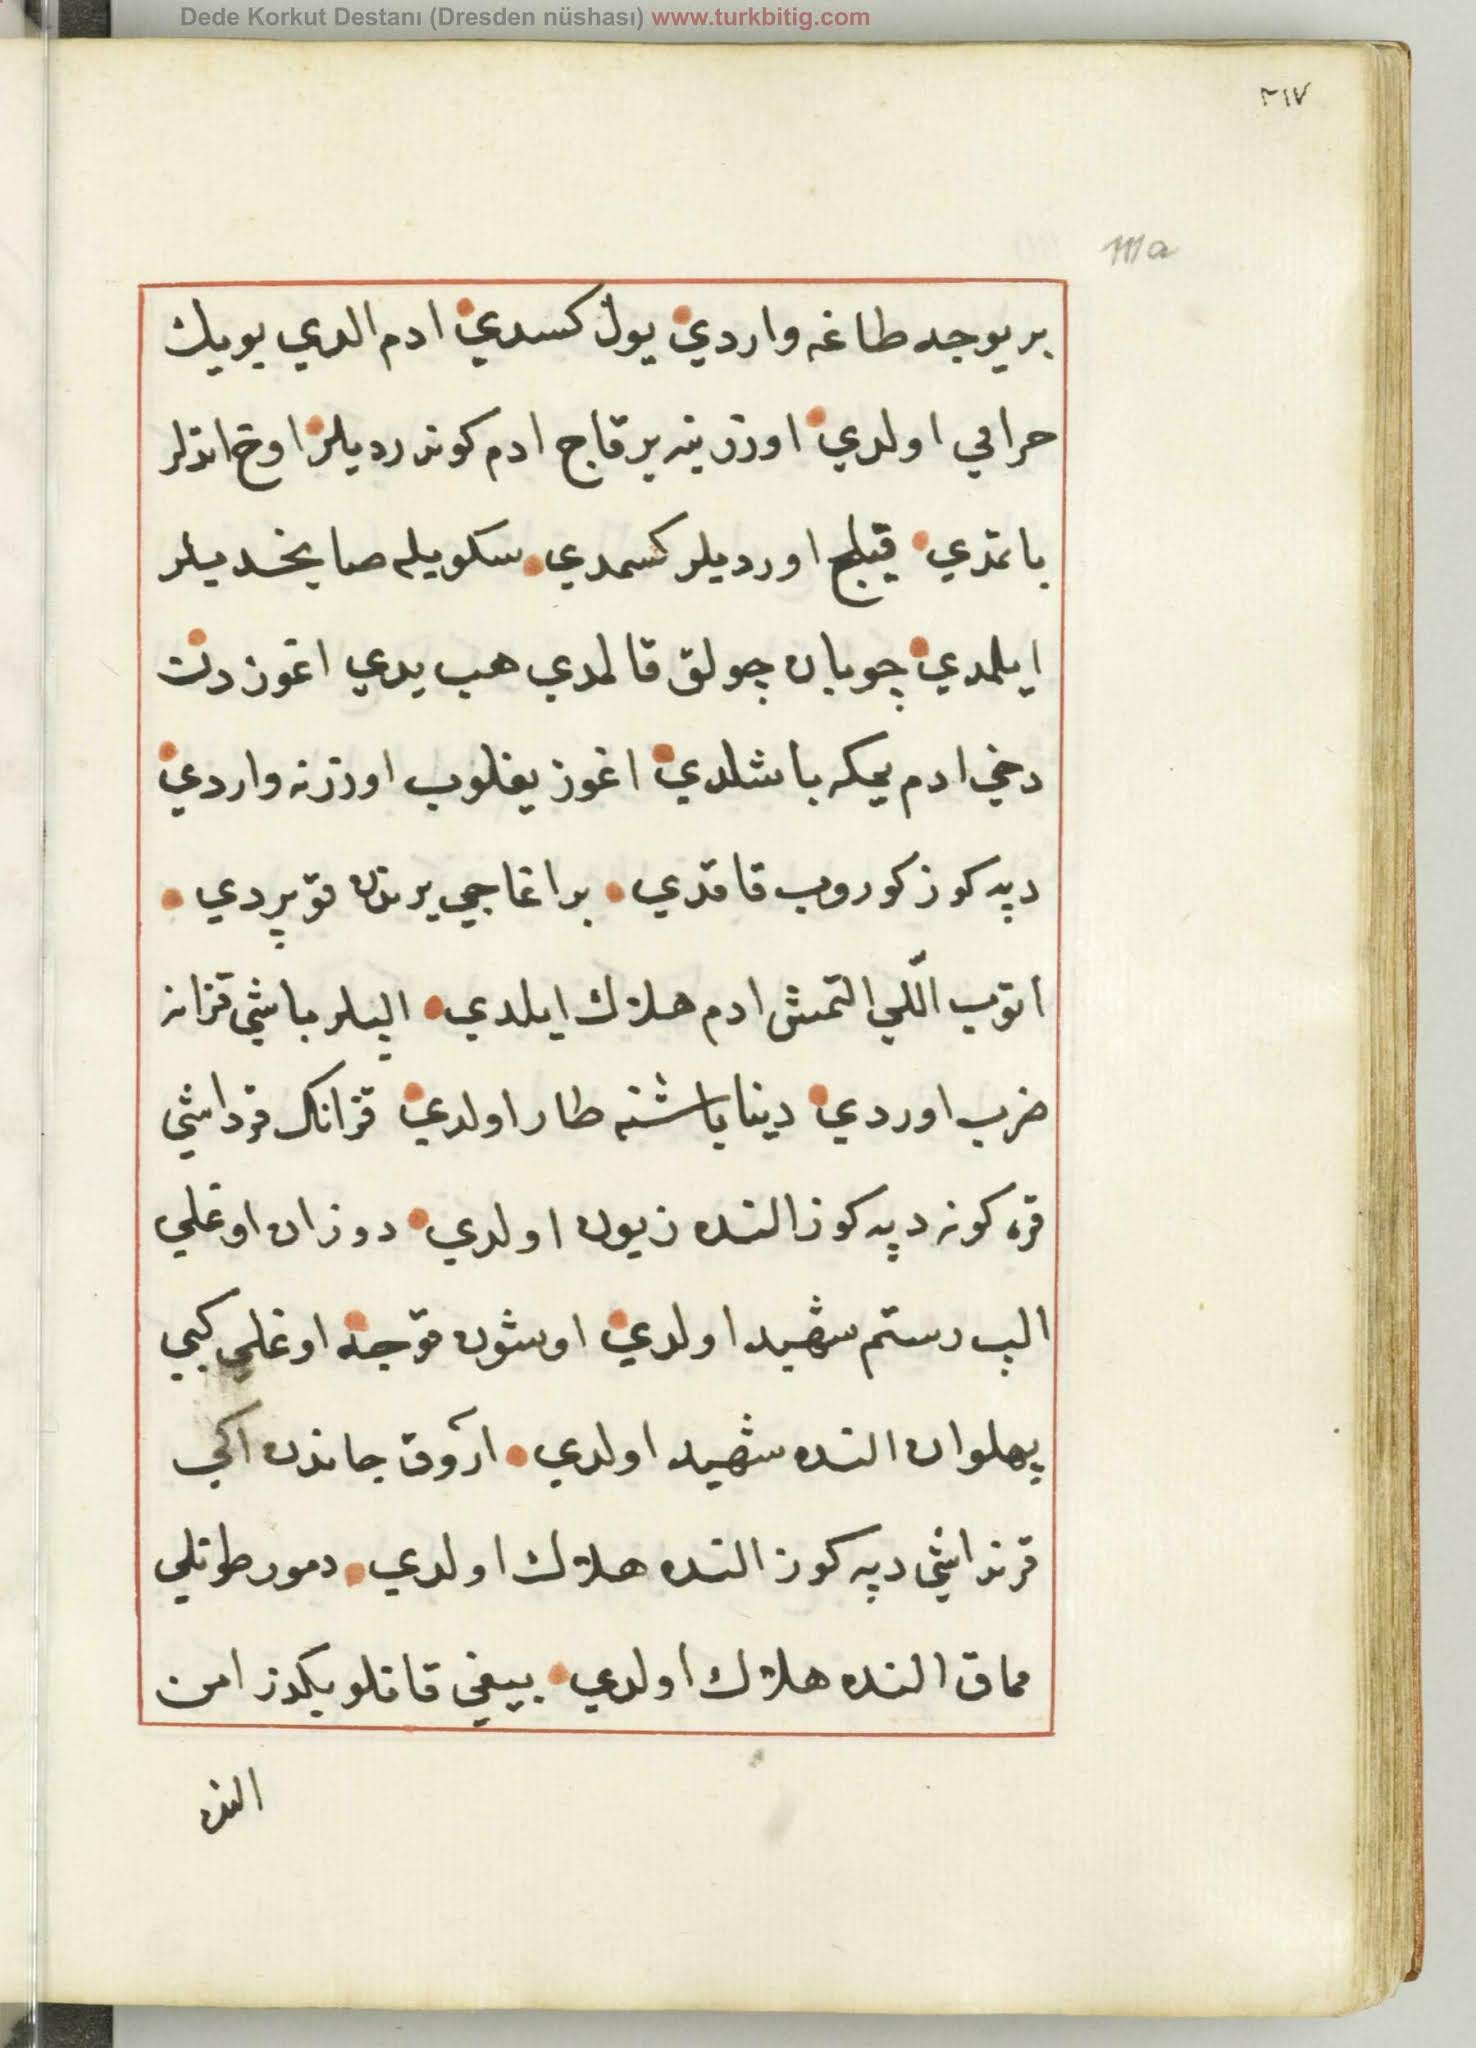 Dede Korkut Destanı (Dresden nüshası) www.turkbitig.com
٢١٧
111a
بر یوجه طاغه واردي یول کسدي ادم الدي بویك
حرامي اولدي اوززینه بر قاج ادم کوندردیلر اوخ اتدلر
باتمدي قیلج اوردیلر کسمدي سکویله صایخدیلر
ایلمدي چوبان چولق قالمدي هب یدي اغوزدن
دخي ادم یمکه باشلدي اغوز یغلوب اوززنه واردي
دپه کوز کوروب قاقدي بر اغاجي یرندن قوپردي
اتوب اللّي التمش ادم هلاك ایلدي الپلر باشي قزانه
ضرب اوردي دینا باشنه طار اولدي قزانك قرداشي
قره کونه دپه کوز النده زبون اولدي دوزان اوغلي
الپ رستم شهید اولدي اوشون قوجه اوغلي کبي
پهلوان النده شهید اولدي اروق جاندن اکي
قرنداشي دپه کوز النده هلاك اولدي دمور طونلي
مماق النده هلاك اولدي بییغي قانلو بکدز امن
النده